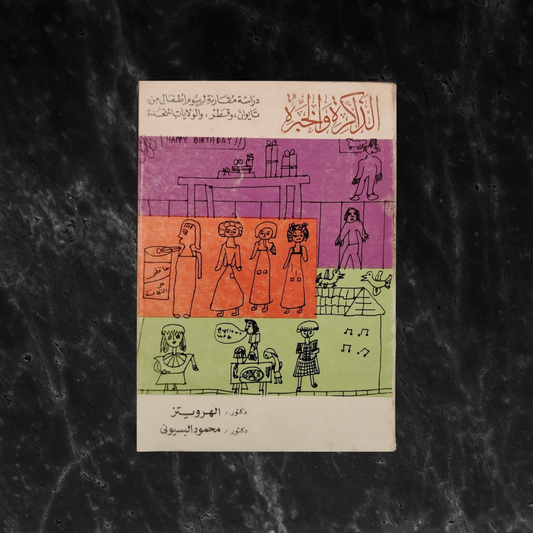 الذاكرة والخبرة
دراسة مقارنة لرسوم أطفال من:
تايوان، وقطر، والولايات المتحدة
HAPPY BIRTHDAY!!
دكتور / الهرويتز
دكتور / محمود البسيوني